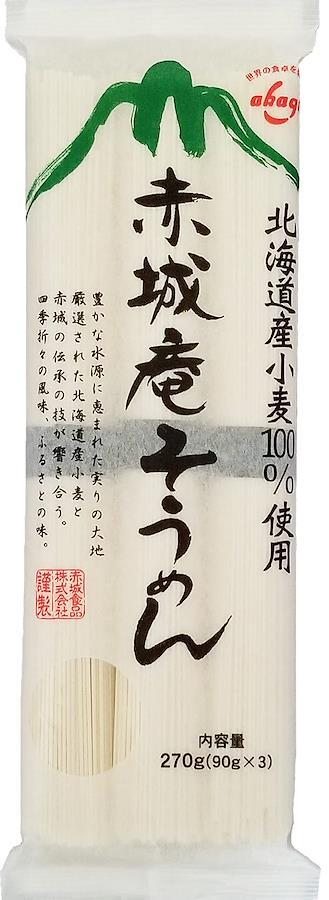 世界の食卓を
akagi
北海道産小麦100%使用
赤城庵そうめん
豊かな水源に恵まれた実りの大地
厳選された北海道産小麦と
赤城の伝承の技が響き合う。
四季折々の風味、ふるさとの味。
赤城食品
株式会社
謹製
内容量
270g(90g×3)